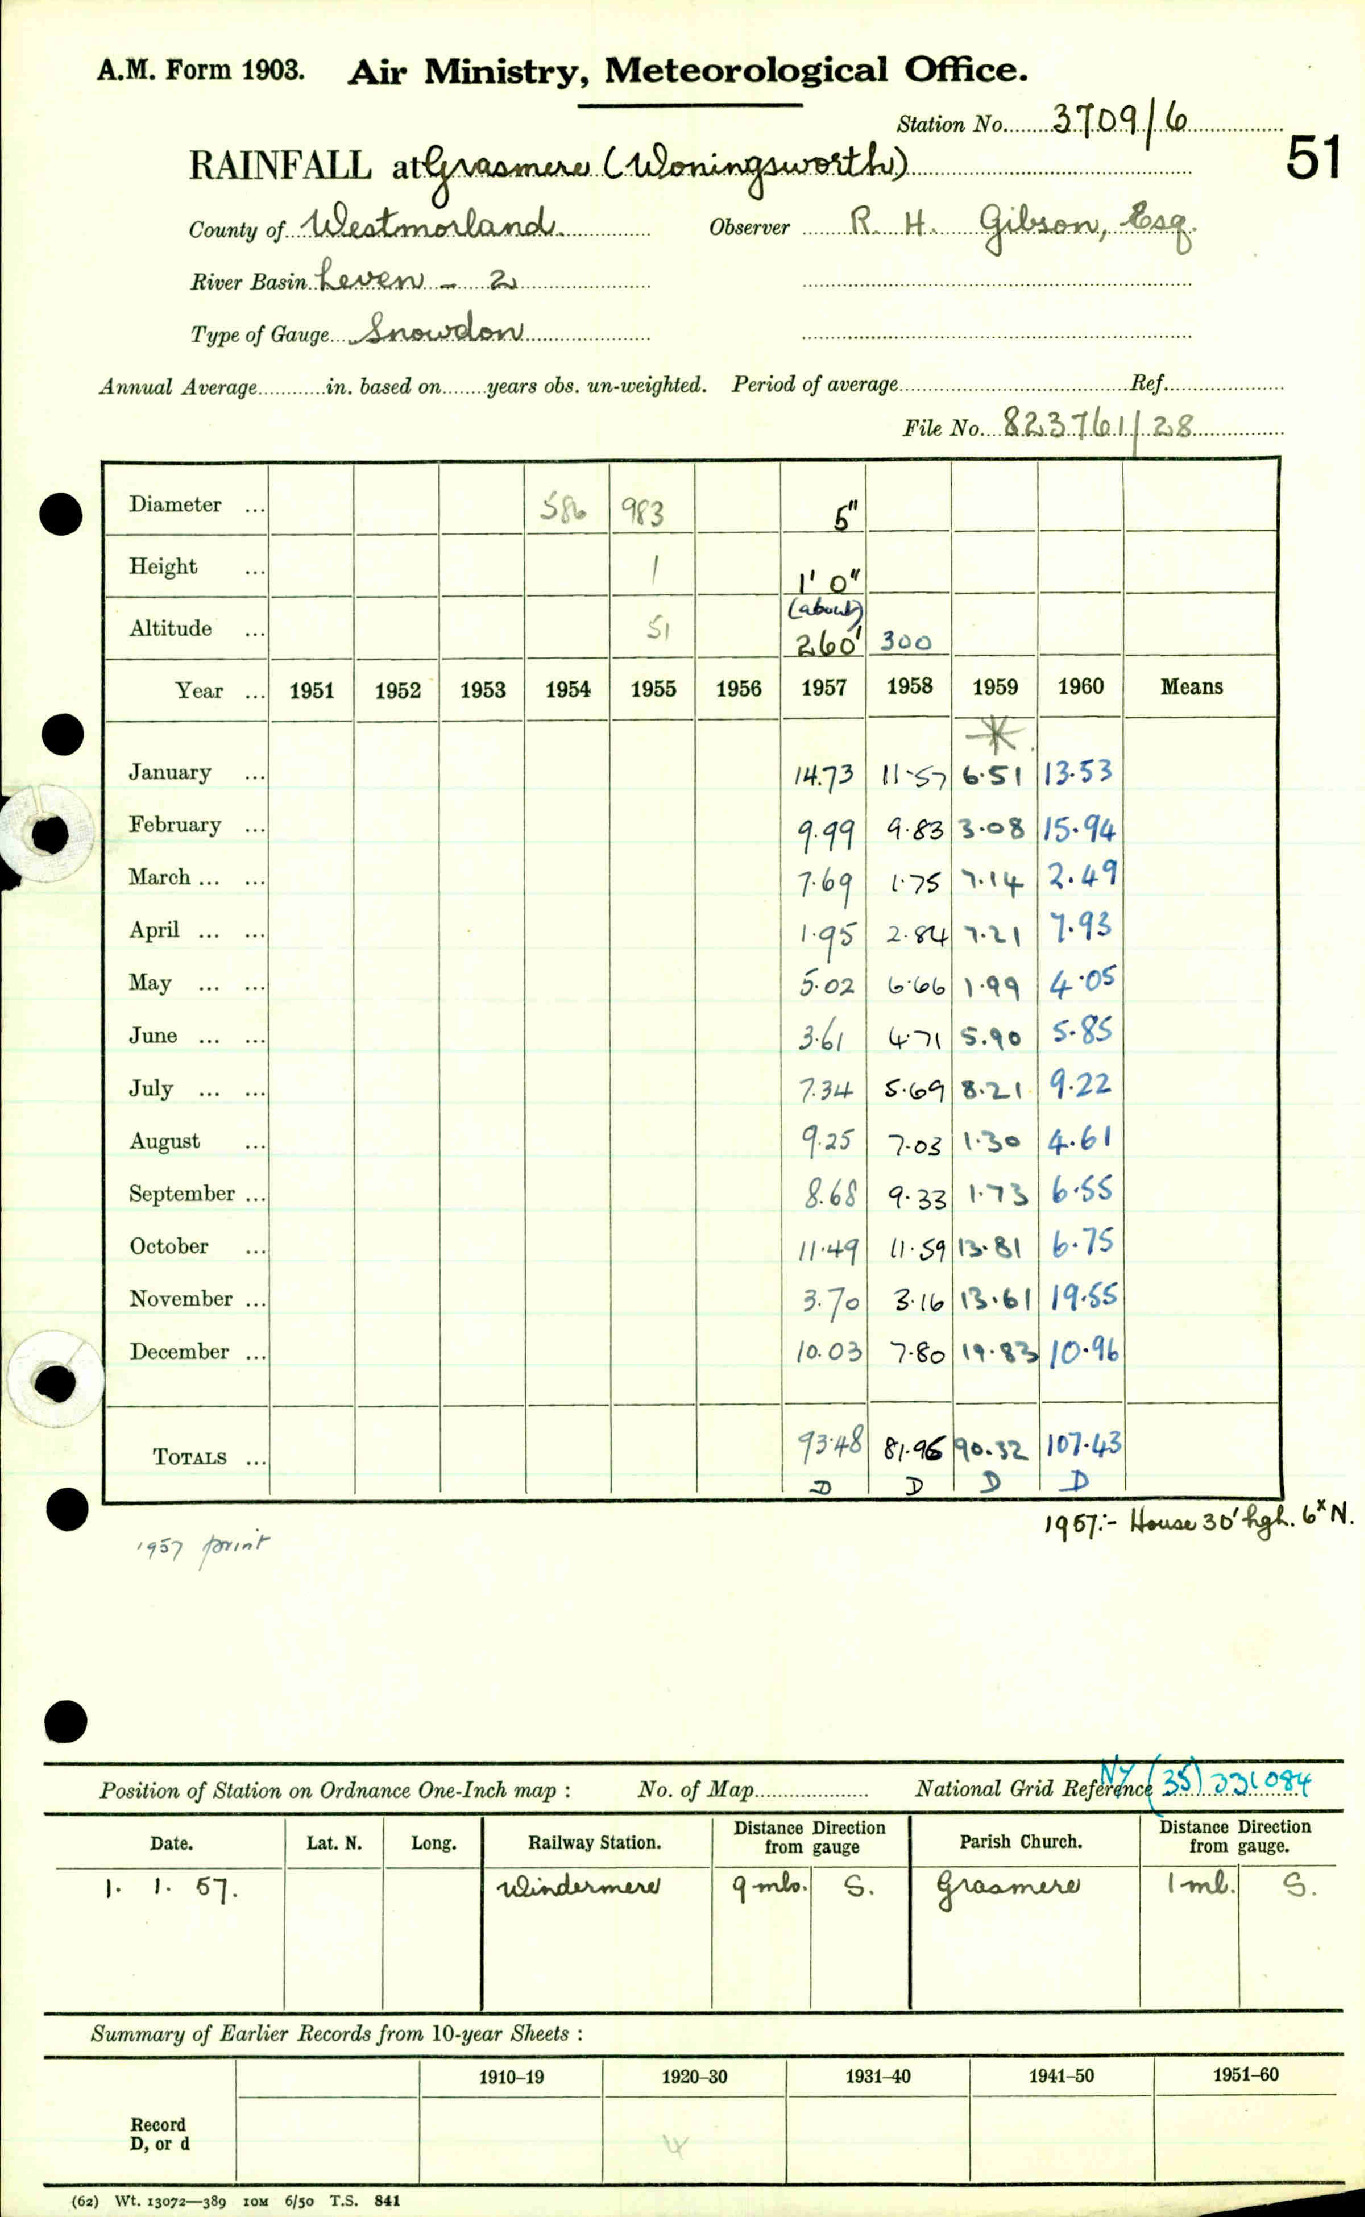 A.M. Form 1903. Air Ministry, Meteorological Office.
Station No. 3709/6
51
RAINFALL at Grasmere (Woningsworth)
County of Westmorland. Observer R. H. Gibson, Esq.
River Basin Leven - 2
Type of Gauge Snowdon
Annual Average in. based on years obs. un-weighted. Period of average Ref.
File No. 823761/28
Diameter ... 586 983 5"
Height ... 1 1' 0"
Altitude ... 51 (about) 260' 300
Year ... 1951 1952 1953 1954 1955 1956 1957 1958 1959 1960 Means
*
January ... 14.73 11.57 6.51 13.53
February ... 9.99 9.83 3.08 15.94
March ... ... 7.69 1.75 7.14 2.49
April ... ... 1.95 2.84 7.21 7.93
May ... ... 5.02 6.66 1.99 4.05
June ... ... 3.61 4.71 5.90 5.85
July ... ... 7.34 5.69 8.21 9.22
August ... 9.25 7.03 1.30 4.61
September ... 8.68 9.33 1.73 6.55
October ... 11.49 11.59 13.81 6.75
November ... 3.70 3.16 13.61 19.55
December ... 10.03 7.80 19.83 10.96
TOTALS ... 93.48 81.96 90.32 107.43
D D D D
1957:- House 30' hgh. 6x N.
1957 print
Position of Station on Ordnance One-Inch map : No. of Map National Grid Reference NY (35) 331084
Date. Lat. N. Long. Railway Station. Distance Direction from gauge Parish Church. Distance Direction from gauge.
1. 1. 57. Windermere 9 mls. S. Grasmere 1 ml. S.
Summary of Earlier Records from 10-year Sheets :
1910–19 1920–30 1931–40 1941–50 1951–60
Record
D, or d
4
(62) Wt. 13072—389 10M 6/50 T.S. 841